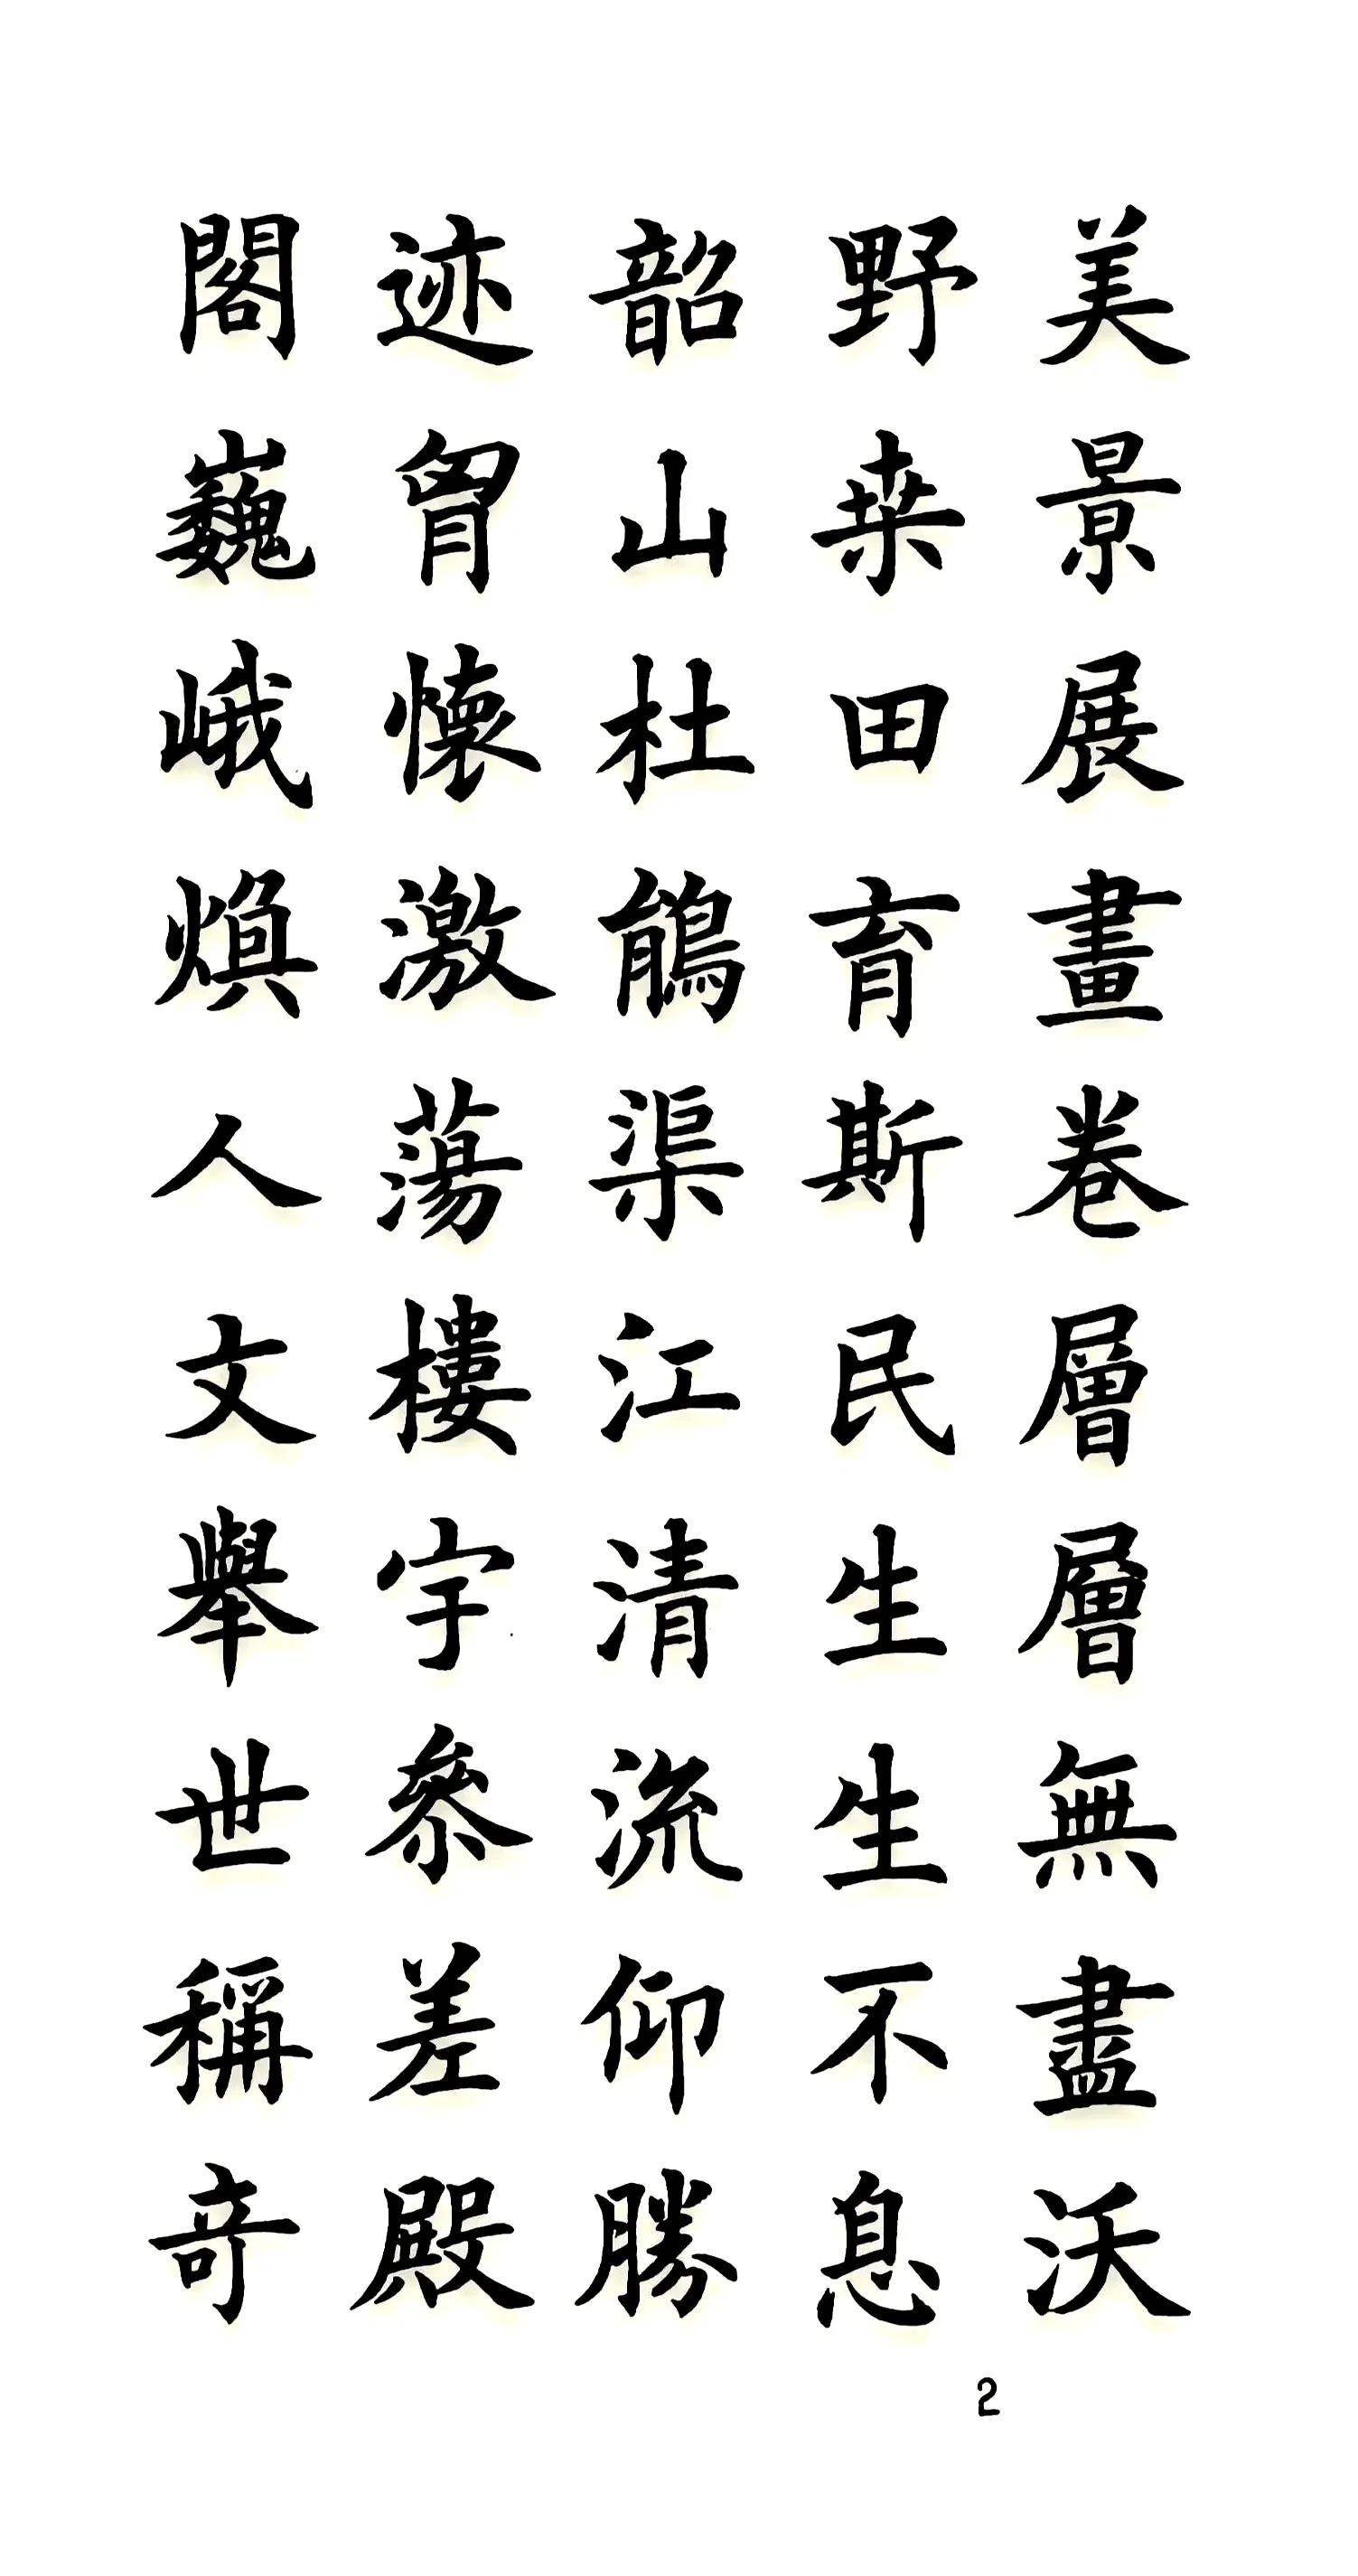 美景展畫卷層層無盡沃
野桒田育斯民生生不息
韶山杜鵑渠江清流仰勝
迹胷懷激蕩樓宇叅差殿
閣巍峨煥人文舉世稱竒
2